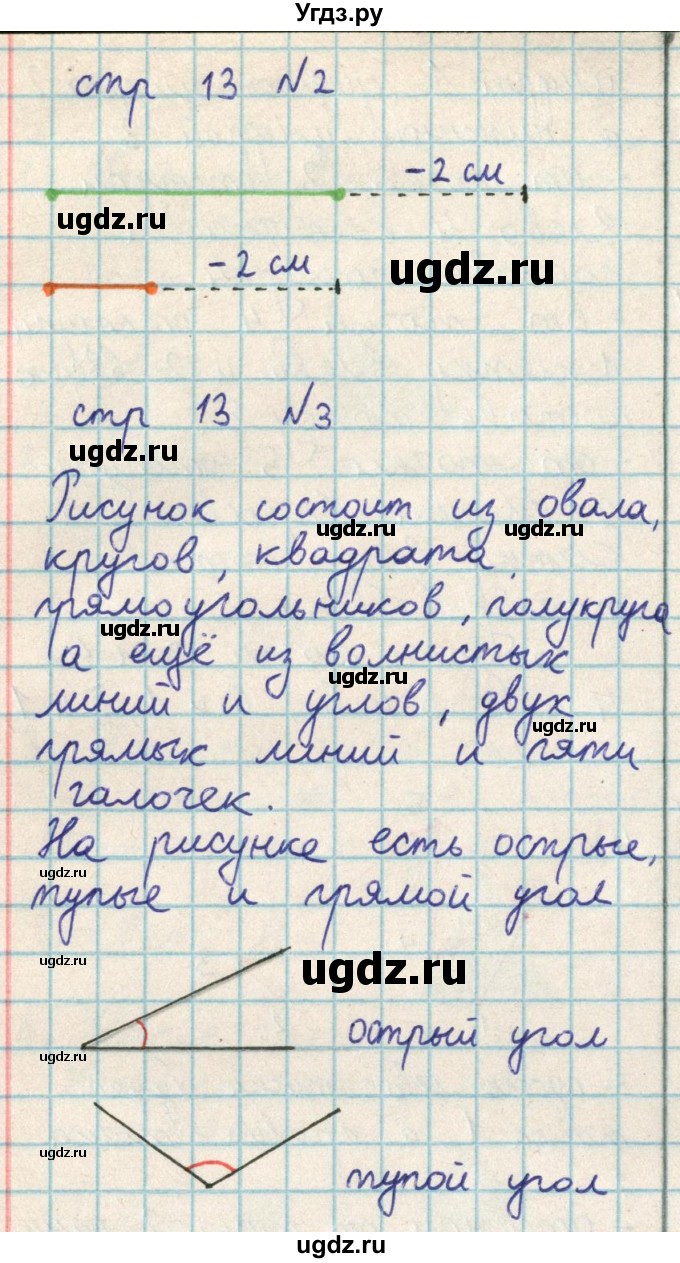 Угдз.ру
стр 13 №2
-2 см
ugdz.ru
-2 см
ugdz.ru
стр 13 №3
ugdz.ru
Рисунок состоит из овала,
ugdz.ru ugdz.ru
кругов, квадрата
прямоугольников, полукруга
ugdz.ru
а ещё из волнистых
ugdz.ru
линий и углов, двух
ugdz.ru
прямых линий и пяти
галочек.
На рисунке есть острые,
ugdz.ru
тупые и прямой угол
ugdz.ru
ugdz.ru
острый угол
ugdz.ru
ugdz.ru
тупой угол
ugdz.ru